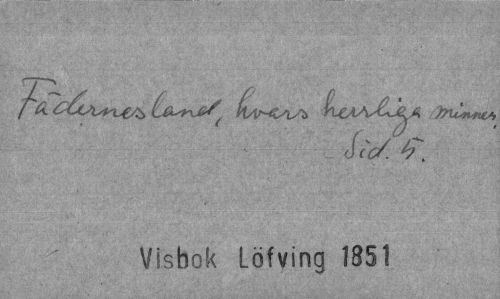 Fädernesland, hvars herrliga minnen,
Sid. 5.
Visbok Löfving 1851